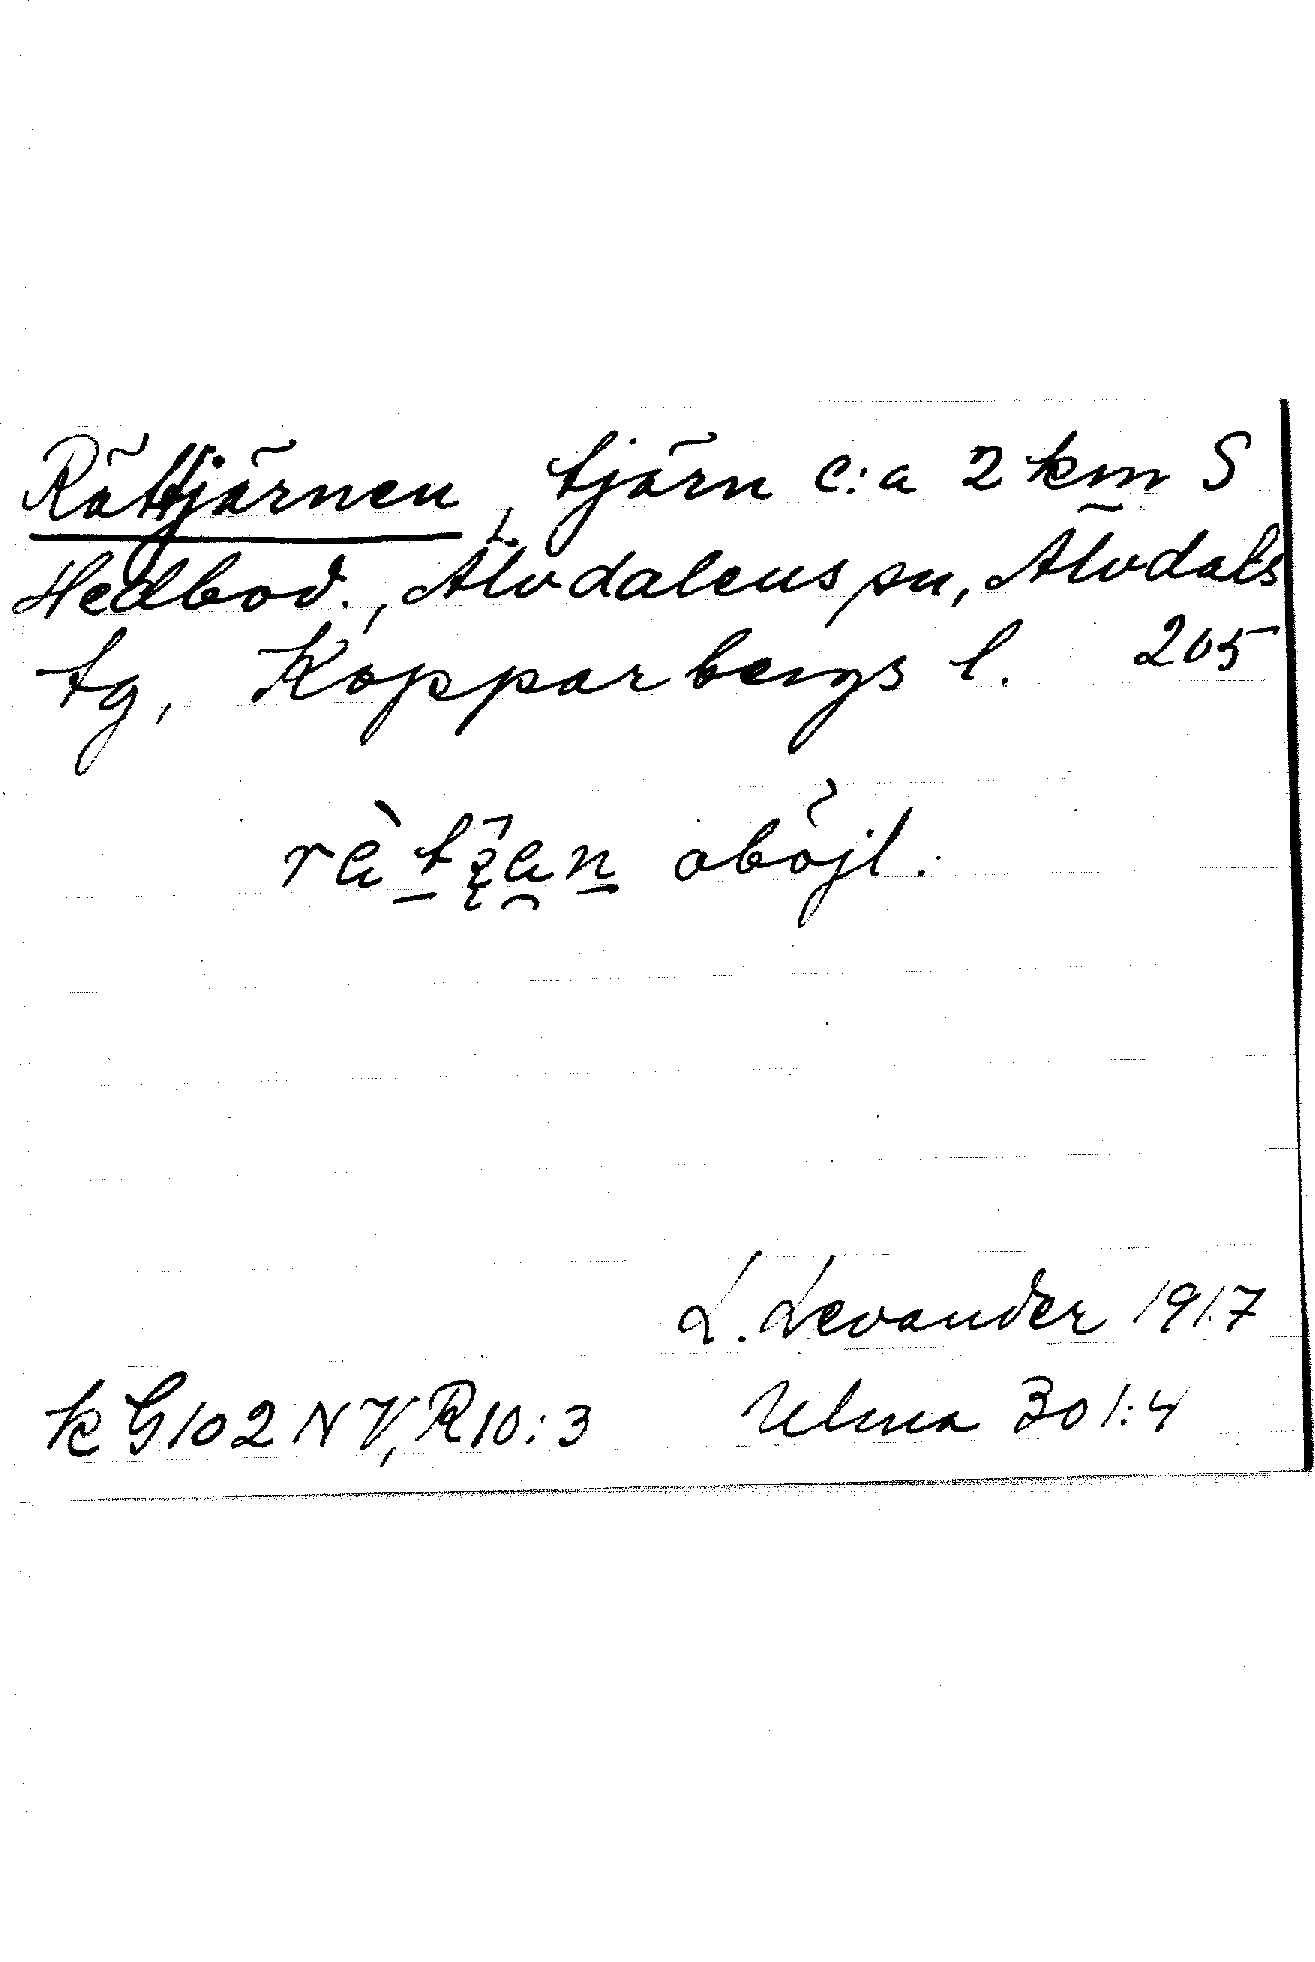 Rättjärnen, tjärn c:a 2 km S
Hedbod., Älvdalens sn, Älvdals
tg, Kopparbergs l. 205
oböjl.
L. Levander 1917
kG102NV, R10:3 Ulma 301:4